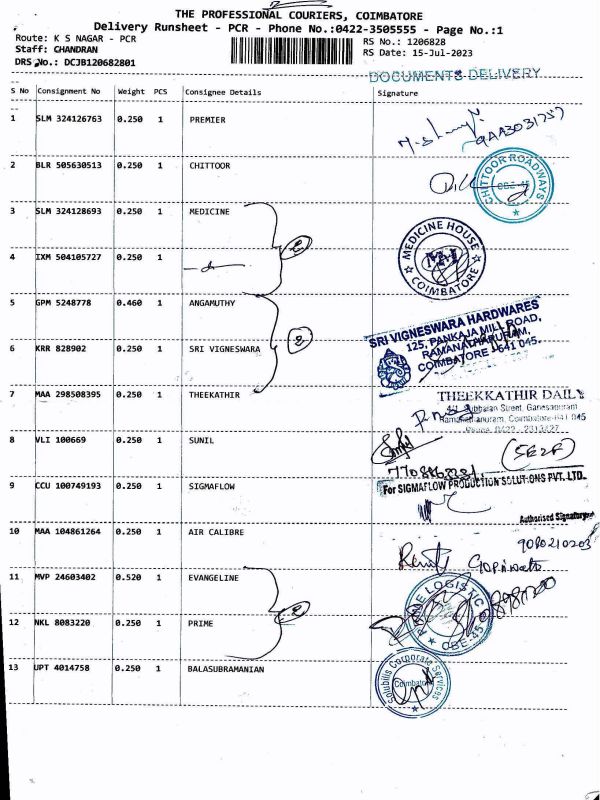 THE PROFESSIONAL COURIERS, COIMBATORE
Delivery Runsheet - PCR - Phone No.:0422-3505555 - Page No.:1
Route: K S NAGAR - PCR
RS No.: 1206828
Staff: CHANDRAN
RS Date: 15-Jul-2023
DRS No.: DCJB120682801
DOCUMENTS DELIVERY
S No Consignment No Weight PCS Consignee Details Signature
1 SLM 324126763 0.250 1 PREMIER
2 BLR 505630513 0.250 1 CHITTOOR
CHITTOOR ROADWAYS
CBE-45
3 SLM 324128693 0.250 1 MEDICINE
MEDICINE HOUSE
COIMBATORE
4 IXM 504105727 0.250 1
2
5 GPM 5248778 0.460 1 ANGAMUTHY
SRI VIGNESWARA HARDWARES
125, PANKAJA MILL ROAD,
RAMANATHAPURAM,
COIMBATORE - 641 045.
2
6 KRR 828902 0.250 1 SRI VIGNESWARA
7 MAA 298508395 0.250 1 THEEKATHIR
THEEKKATHIR DAILY
Street, Ganesapuram
Ramanathapuram, Coimbatore-641 045
8 VLI 100669 0.250 1 SUNIL
9 CCU 100749193 0.250 1 SIGMAFLOW
For SIGMAFLOW PRODUCTION SOLUTIONS PVT. LTD.
Authorised Signatory
10 MAA 104861264 0.250 1 AIR CALIBRE
9080210203
11 MVP 24603402 0.520 1 EVANGELINE
PRIME LOGISTIC
CBE-45
2
12 NKL 8083220 0.250 1 PRIME
13 UPT 4014758 0.250 1 BALASUBRAMANIAN
Solubilis Corporate Services
Coimbatore